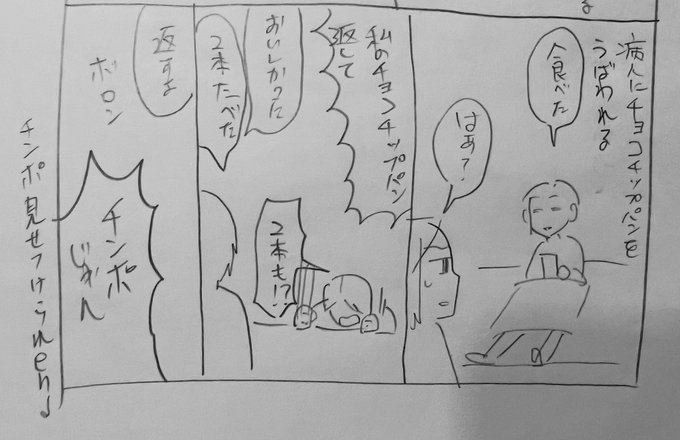 病人にチョコチップパンを
うばわれる
食べた
はぁ?
私のチョコチップパン
返して
おいしかった
2本たべた
2本も!?
返すよ
ボロン
チンポ
じゃん
チンポ見せつけられend